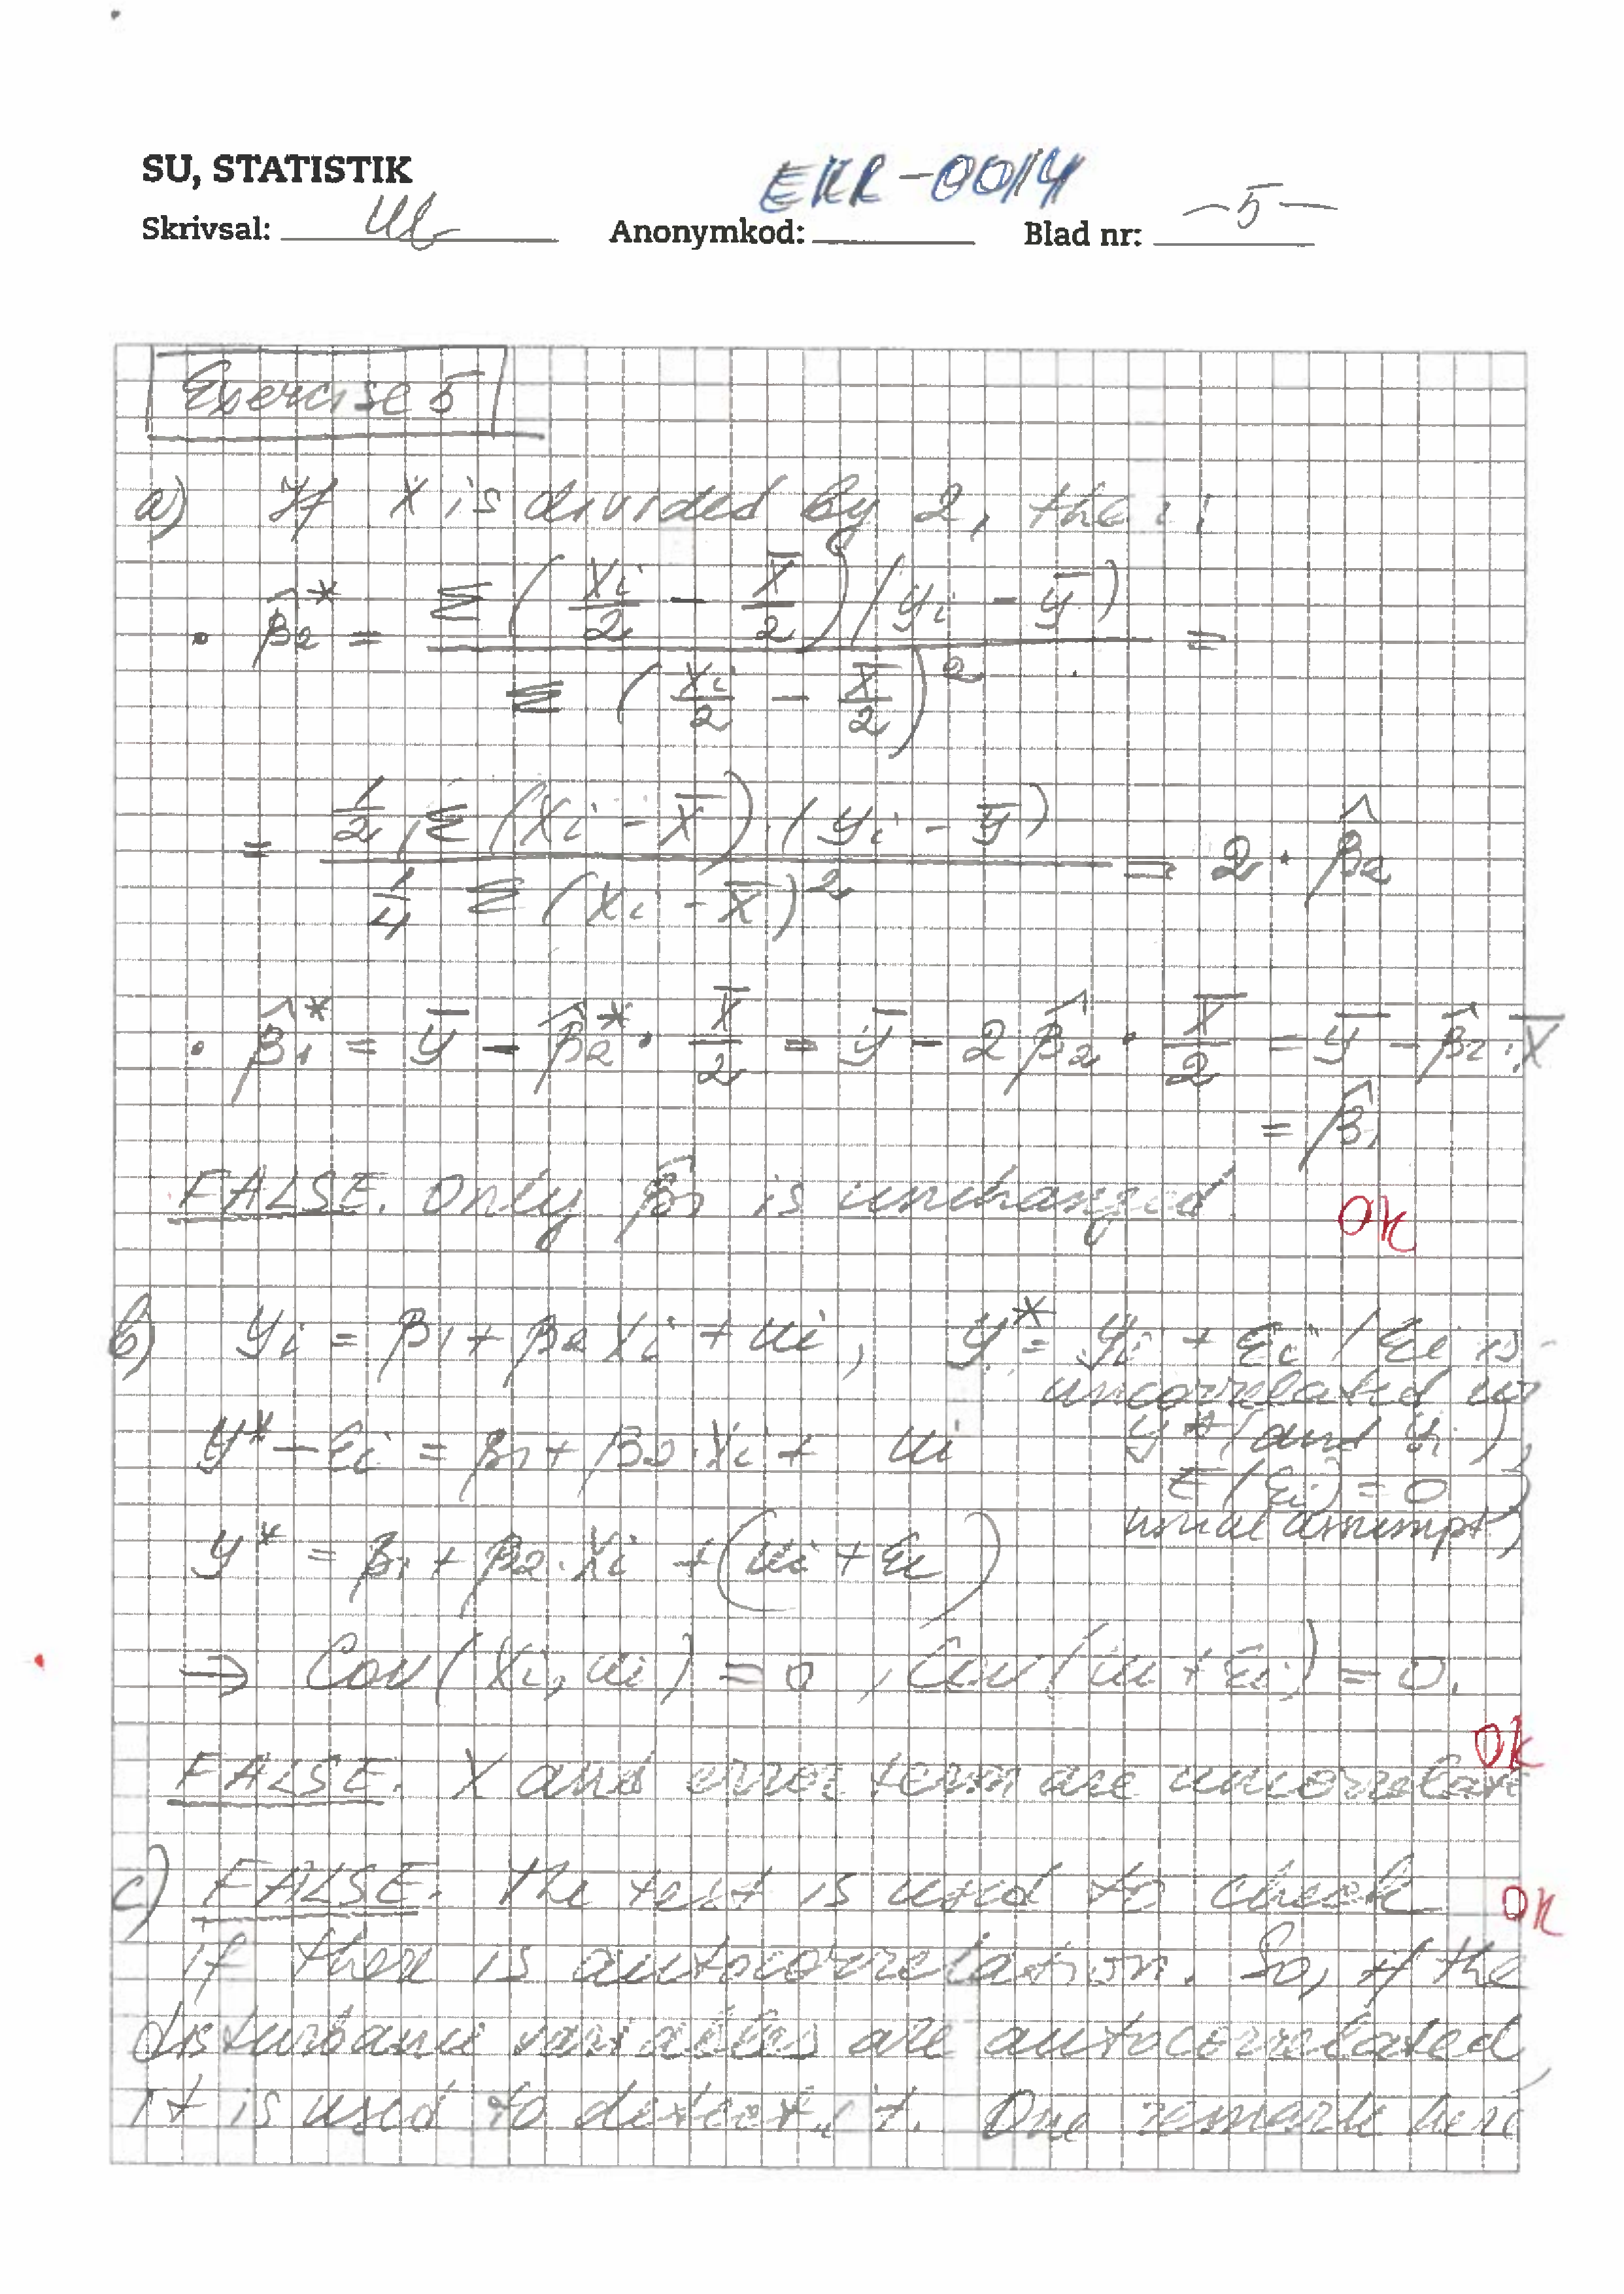 SU, STATISTIK
EKR-0014
Skrivsal: Anonymkod: Blad nr: -5-
Exercise 5
a) If X is divided by 2, the
• β̂2* = Σ(Xi/2 - X̄/2)(yi - ȳ) / Σ(Xi/2 - X̄/2)² =
= 1/2 Σ(Xi - X̄)·(yi - ȳ) / 1/4 Σ(Xi - X̄)² = 2 · β̂2
• β̂1* = ȳ - β̂2* · X̄/2 = ȳ - 2β̂2 · X̄/2 = ȳ - β̂2·X̄
= β̂1
FALSE. Only β̂1 is unchanged OK
b) yi = β1 + β2 Xi + ui, y* = yi + εi / εi is
uncorrelated w
y* - εi = β1 + β2·Xi + ui y* (and yi),
E(εi) = 0
y* = β1 + β2·Xi + (ui + εi) usual assumpt)
⇒ Cov(Xi, ui) = 0, Cov(ui + εi) = 0.
OK
FALSE. X and error term are uncorrelate
c) FALSE. The test is used to check OK
if there is autocorrelation. So, if the
disturbance variables are autocorrelated,
it is used to detect it. One remark here